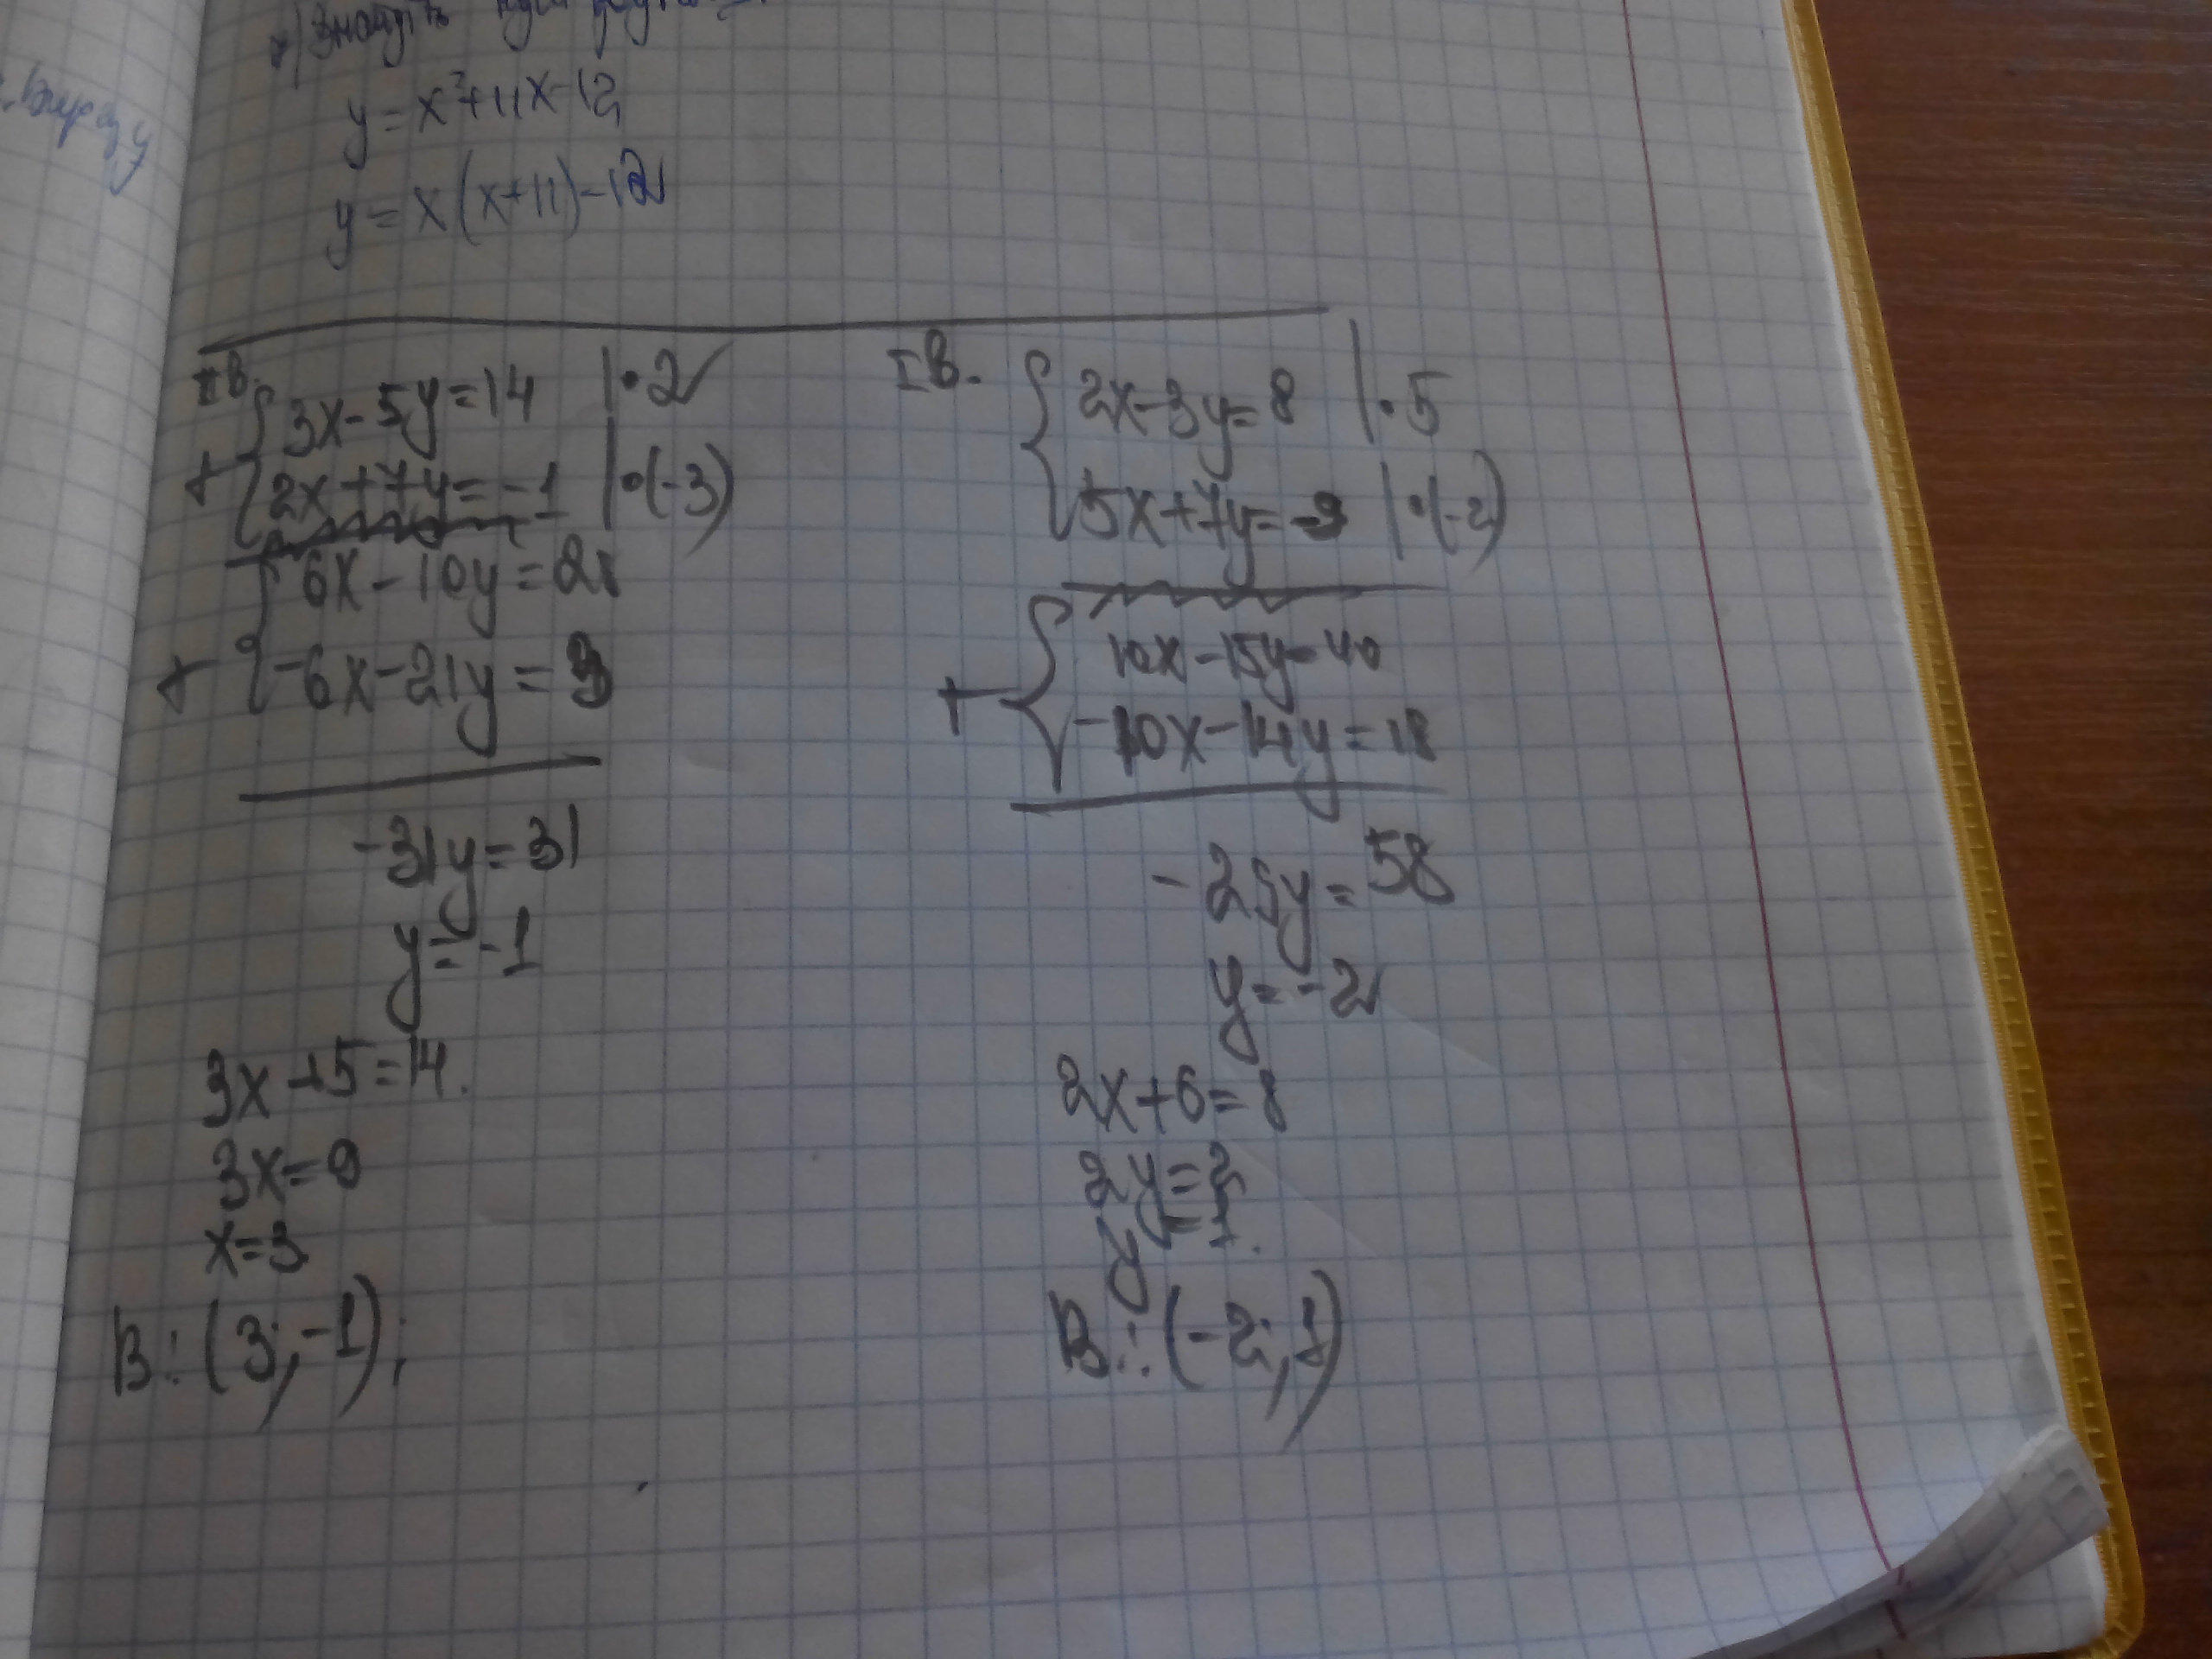 Знайдіть
y=x²+11x-12
y=x(x+11)-12
II B.
3x-5y=14 |•2
+ 2x+7y=-1 |•(-3)
6x-10y=28
+ -6x-21y=3
-31y=31
y=-1
3x+5=14.
3x=9
x=3
B: (3;-1);
I B.
2x-3y=8 |•5
5x+7y=-9 |•(-2)
10x-15y=40
+ -10x-14y=18
-29y=58
y=-2
2x+6=8
2y=2
y=1.
B: (-2;1)